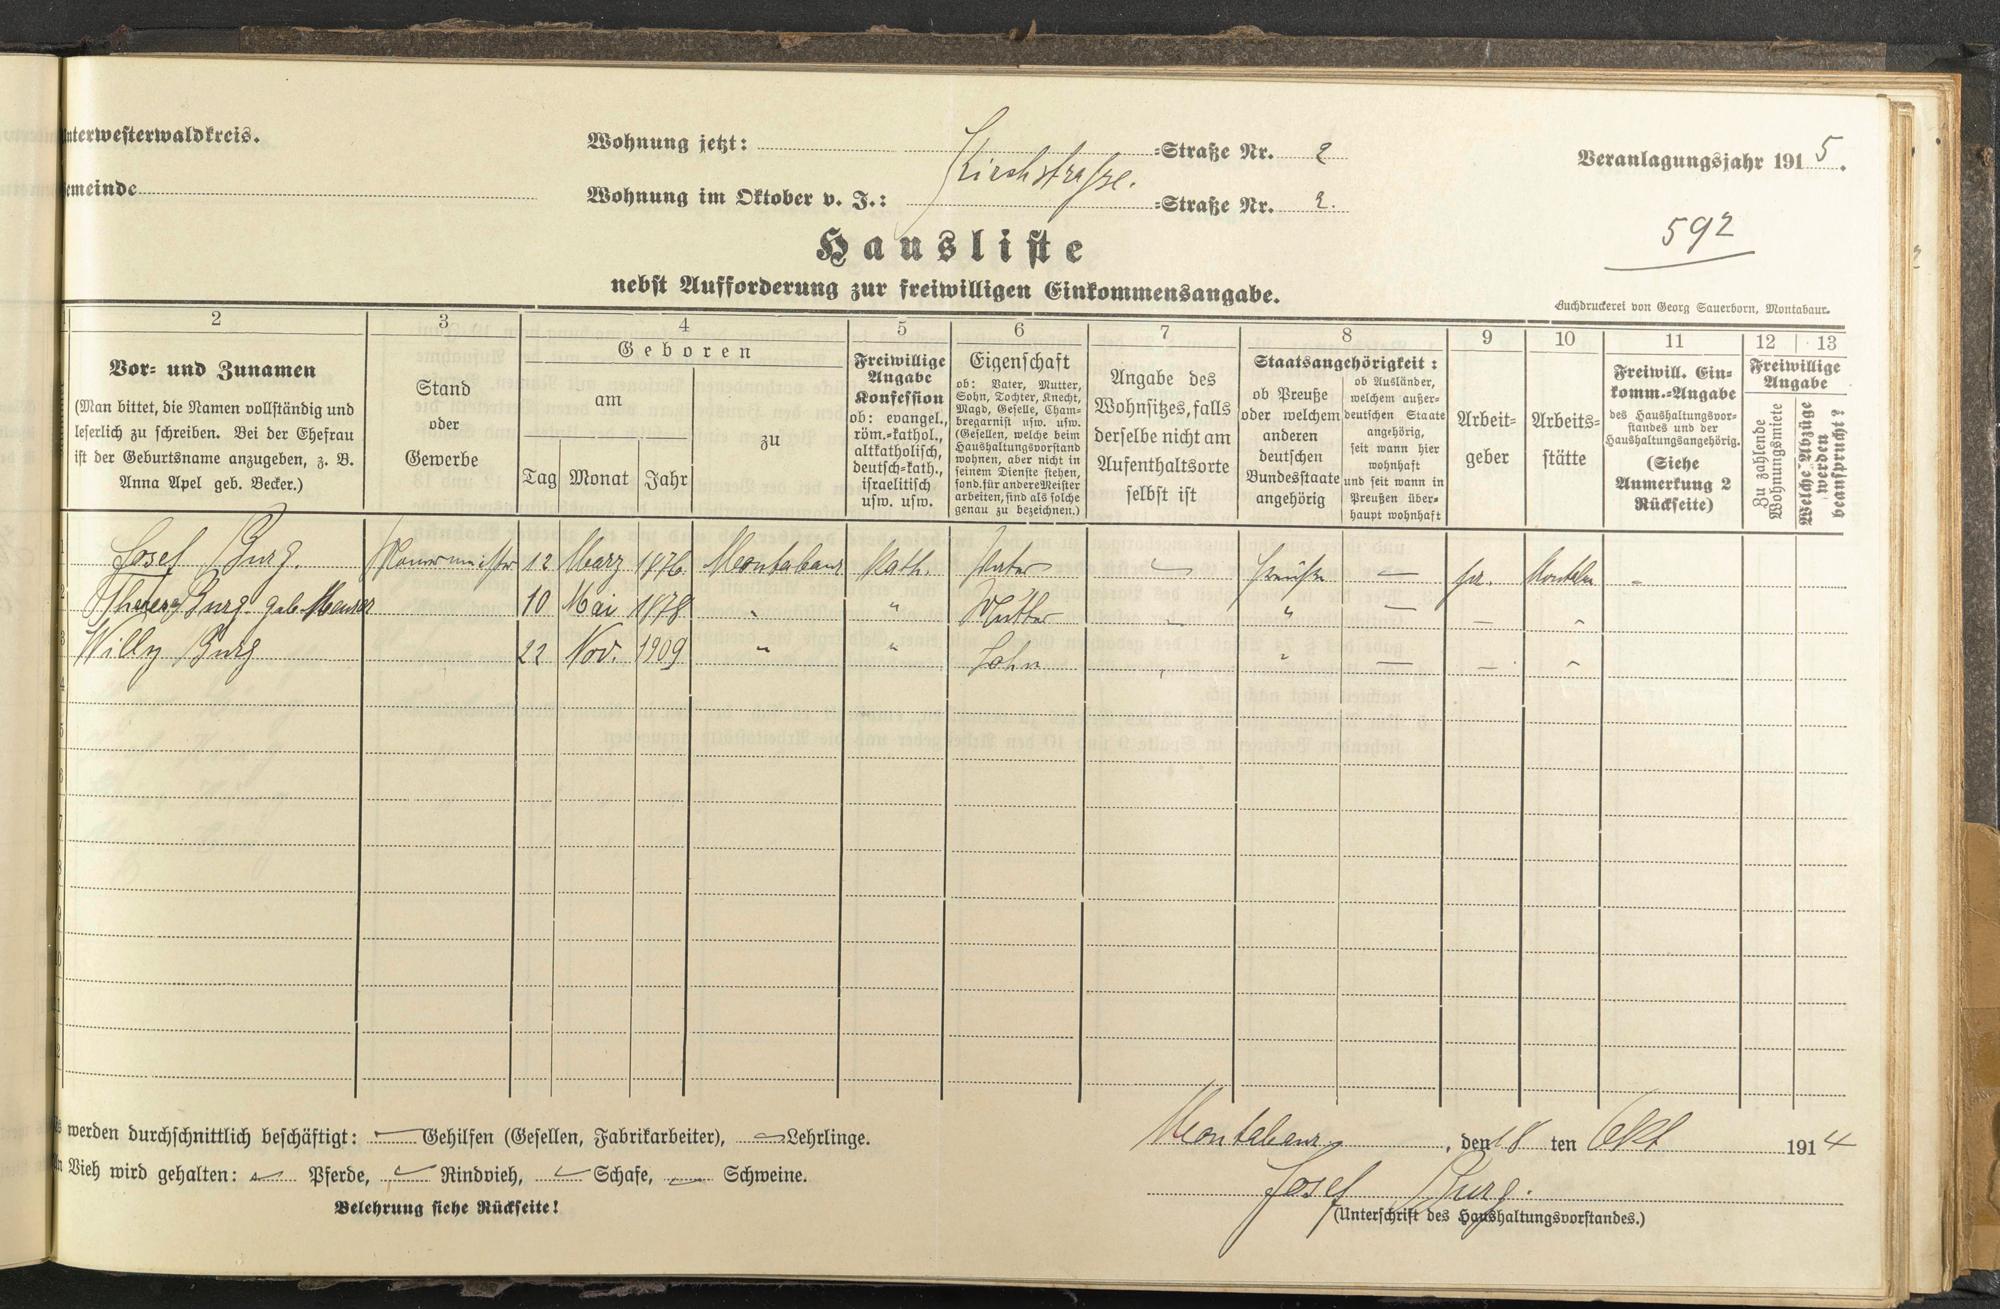 nterwesterwaldkreis.
Wohnung jetzt: Kirchstraße. =Straße Nr. 2
Veranlagungsjahr 1915.
emeinde
Wohnung im Oktober v. J.: =Straße Nr. 2.
592
Hausliste
nebst Aufforderung zur freiwilligen Einkommensangabe.
Buchdruckerei von Georg Sauerborn, Montabaur.
2 3 4 5 6 7 8 9 10 11 12 13
Vor= und Zunamen
(Man bittet, die Namen vollständig und
leserlich zu schreiben. Bei der Ehefrau
ist der Geburtsname anzugeben, z. B.
Anna Apel geb. Becker.)
Stand
oder
Gewerbe
Geboren
am
zu
Tag Monat Jahr
Freiwillige
Angabe
Konfession
ob: evangel.,
röm.=kathol.,
altkatholisch,
deutsch=kath.,
israelitisch
usw. usw.
Eigenschaft
ob: Vater, Mutter,
Sohn, Tochter, Knecht,
Magd, Geselle, Cham=
bregarnist usw. usw.
(Gesellen, welche beim
Haushaltungsvorstand
wohnen, aber nicht in
seinem Dienste stehen,
sond. für andere Meister
arbeiten, sind als solche
genau zu bezeichnen.)
Angabe des
Wohnsitzes, falls
derselbe nicht am
Aufenthaltsorte
selbst ist
Staatsangehörigkeit:
ob Preuße
oder welchem
anderen
deutschen
Bundesstaate
angehörig
ob Ausländer,
welchem außer=
deutschen Staate
angehörig,
seit wann hier
wohnhaft
und seit wann in
Preußen über=
haupt wohnhaft
Arbeit=
geber
Arbeits=
stätte
Freiwill. Ein=
komm.=Angabe
des Haushaltungsvor=
standes und der
Haushaltungsangehörig.
(Siehe
Anmerkung 2
Rückseite)
Freiwillige
Angabe
Zu zahlende
Wohnungsmiete
Welche Abzüge
werden
beansprucht?
1 Josef Burg. 12 März 1876 Montabaur Kath. Vater Preuße —
2 Therese Burg geb. 10 Mai 1878 " " Mutter " —
3 Willy Burg 22 Nov. 1909 " " Sohn " —
4
5
6
7
8
9
10
11
12
s werden durchschnittlich beschäftigt: — Gehilfen (Gesellen, Fabrikarbeiter), — Lehrlinge.
n Vieh wird gehalten: — Pferde, — Rindvieh, — Schafe, — Schweine.
Belehrung siehe Rückseite!
Montabaur, den 18 ten Okt 1914
Josef Burg.
(Unterschrift des Haushaltungsvorstandes.)